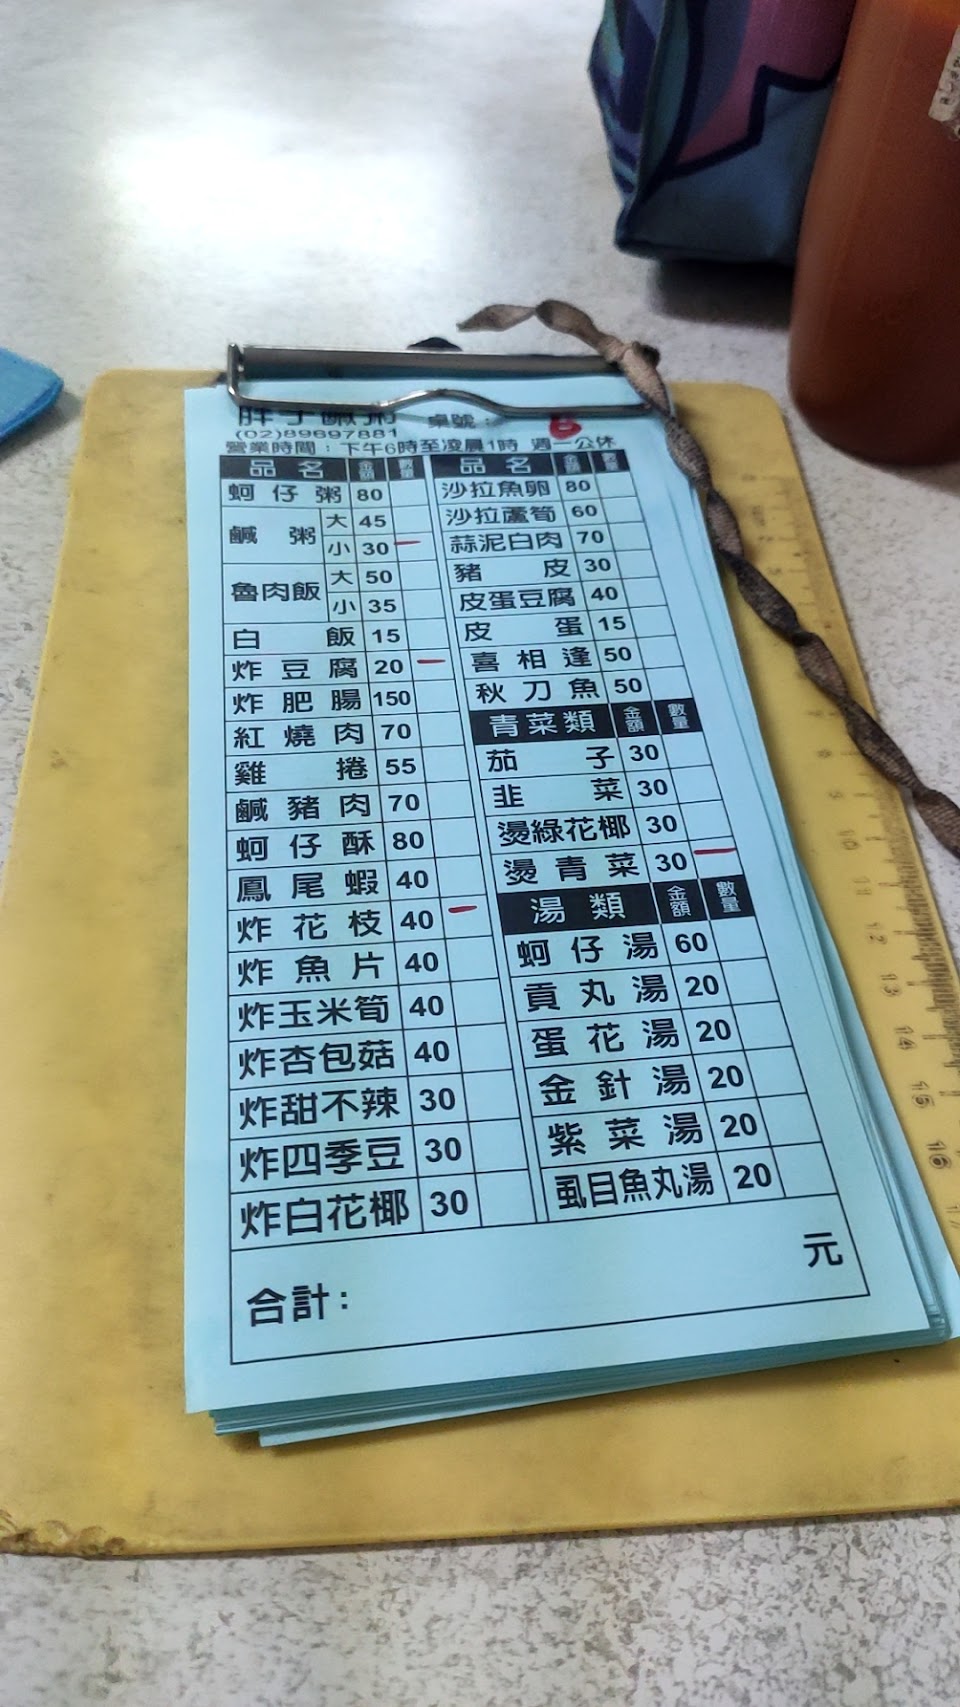 胖子鹹粥 桌號: 6
(02)89697881
營業時間：下午6時至凌晨1時 週一公休
品名 金額 數量
蚵仔粥 80
鹹粥 大 45
小 30 一
魯肉飯 大 50
小 35
白飯 15
炸豆腐 20 一
炸肥腸 150
紅燒肉 70
雞捲 55
鹹豬肉 70
蚵仔酥 80
鳳尾蝦 40
炸花枝 40 一
炸魚片 40
炸玉米筍 40
炸杏包菇 40
炸甜不辣 30
炸四季豆 30
炸白花椰 30
品名 金額 數量
沙拉魚卵 80
沙拉蘆筍 60
蒜泥白肉 70
豬皮 30
皮蛋豆腐 40
皮蛋 15
喜相逢 50
秋刀魚 50
青菜類 金額 數量
茄子 30
韭菜 30
燙綠花椰 30
燙青菜 30 一
湯類 金額 數量
蚵仔湯 60
貢丸湯 20
蛋花湯 20
金針湯 20
紫菜湯 20
虱目魚丸湯 20
合計: 元
10
12
13
14
15
16